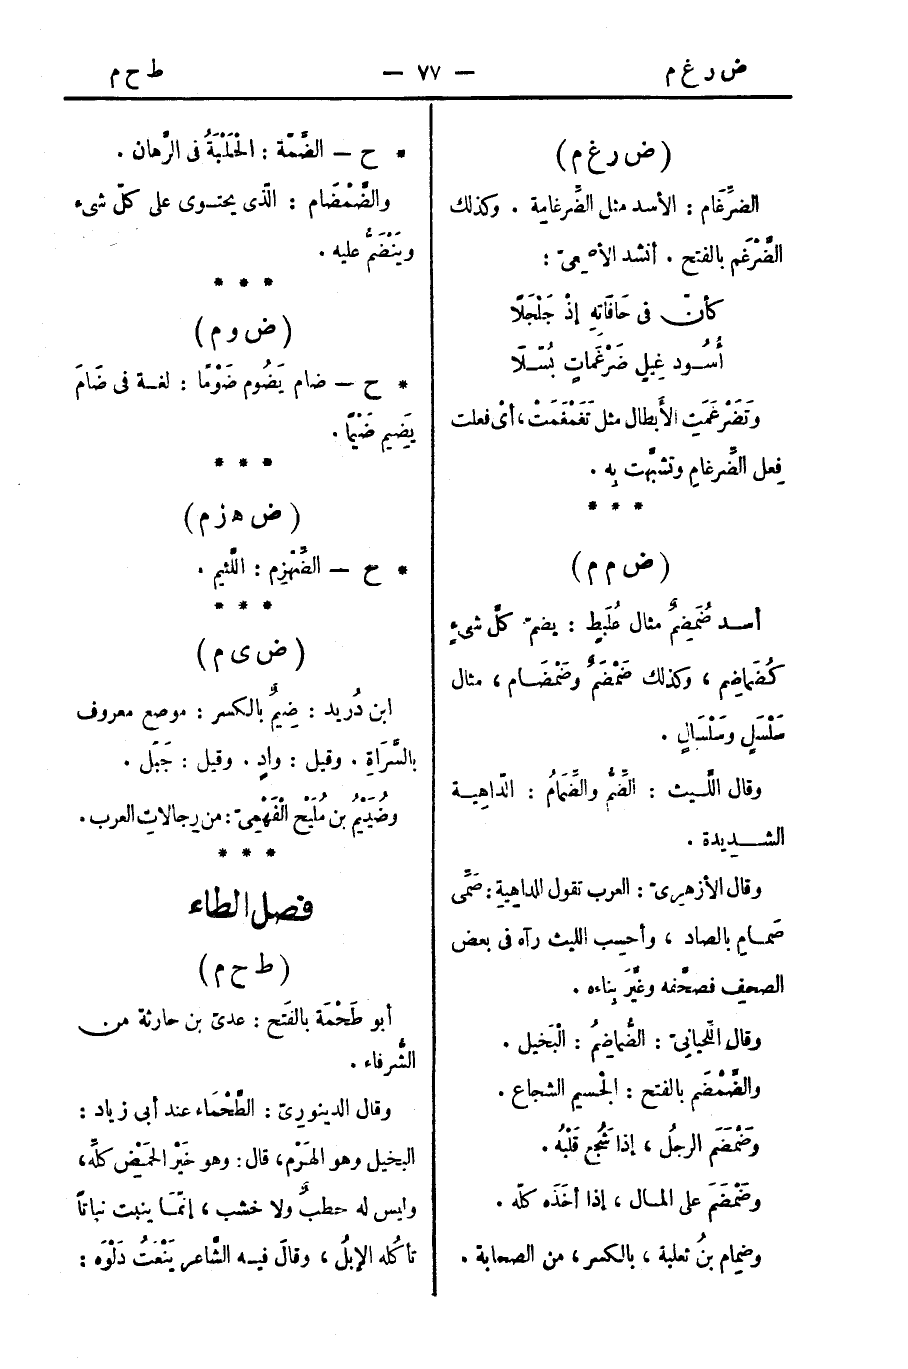 ض ر غ م — ٧٧ — ط ح م
( ض ر غ م )
الضِّرغَام : الأسد مثل الضِّرغامة . وكذلك
الضَّرْغَم بالفتح . أنشد الأصمعىّ :
كأنّ فى حَافَاتِهِ إذْ جَلْجَلَا
أُسُـود غِيلٍ ضَرْغَماتٍ بُسَّـلَا
وتَضَرْغَمَتِ الأَبطال مثل تَغَمْغَمَتْ ، أىْ فعلت
فِعل الضِّرغامِ وتشبَّهت بِه .
* * *
( ض م م )
أسـد ضُمَضِمٌ مثال عُلَبِطٍ : يضمّ كلَّ شىءٍ
كَضُمَاضِم ، وكذلك ضَمْضَمٌ وضَمْضَـام ، مثال
سَلْسَلٍ وسَلْسَالٍ .
وقال اللَّـيث : الضِّمُّ والضِّمَامُ : الدّاهِيـة
الشـديدة .
وقال الأزهرِىّ : العرب تقول للداهية : صَمِّى
صَمـامِ بالصاد ، وأحسِب الليث رآه فى بعض
الصحفِ فصحَّفه وغيَّرَ بِناءه .
وقال اللِّحيانِىّ : الضُّمَاضِمُ : الْبَخيل .
والضَّمْضَم بالفتح : الْجسيم الشجاع .
وضَمْضَمَ الرجلُ ، إذا شَجُعَ قَلْبُه .
وضَمْضَمَ على المـال ، إذا أخَذَه كلّه .
وضِمام بنُ ثعلبة ، بالكسر ، من الصحابة .
* ح — الضَّمَّة : الْحَلْبَةُ فى الرَّهان .
والضَّمْضَام : الَّذى يحتـوى على كلّ شىء
وينْضَمُّ عليه .
* * *
( ض و م )
* ح — ضام يَضُوم ضَوْمًا : لغـة فى ضَامَ
يَضِيم ضَيْمًا .
* * *
( ض ه ز م )
* ح — الضِّهْزِم : اللَّئيم .
* * *
( ض ى م )
ابن دُريد : ضِيمٌ بالكسر : موضع معروف
بالسَّرَاةِ . وقيل : وادٍ . وقيل : جَبَل .
وضُيَيْمُ بن مُلَيْح الْفَهْمِىّ : من رِجالاتِ العرب .
* * *
فصل الطاء
( ط ح م )
أبو طَحْمَة بالفَتح : عدىّ بن حارثة من
الشُّرفاء .
وقال الدينورِىّ : الطَّحْمَاء عند أبى زياد :
البخيل وهو الهَرْم ، قال : وهو خَيْر الْحَمْضِ كلِّه ،
وليس له حطبٌ ولا خشب ، إنّمـا ينبت نباتًا
تأكُله الإبلُ ، وقالَ فيـه الشَّاعر يَنْعَتُ دَلْوَه :